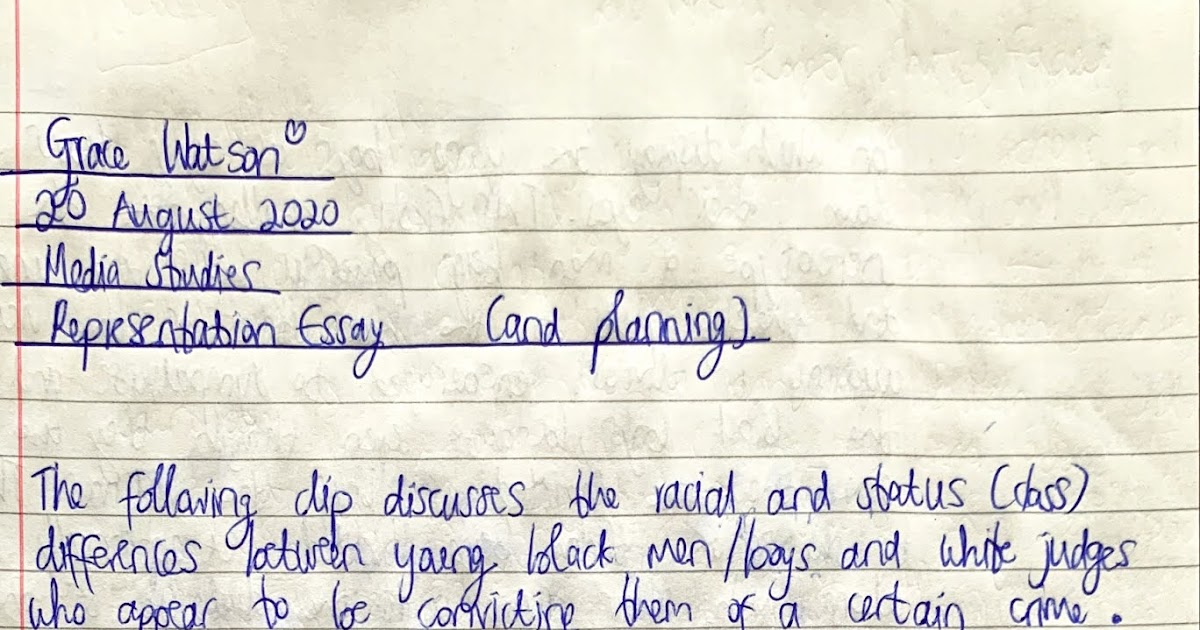 Grace Watson♡
20 August 2020
Media Studies
Representation Essay (and planning).
The following clip discusses the racial and status (class)
differences between young black men/boys and white judges
who appear to be convicting them of a certain crime.